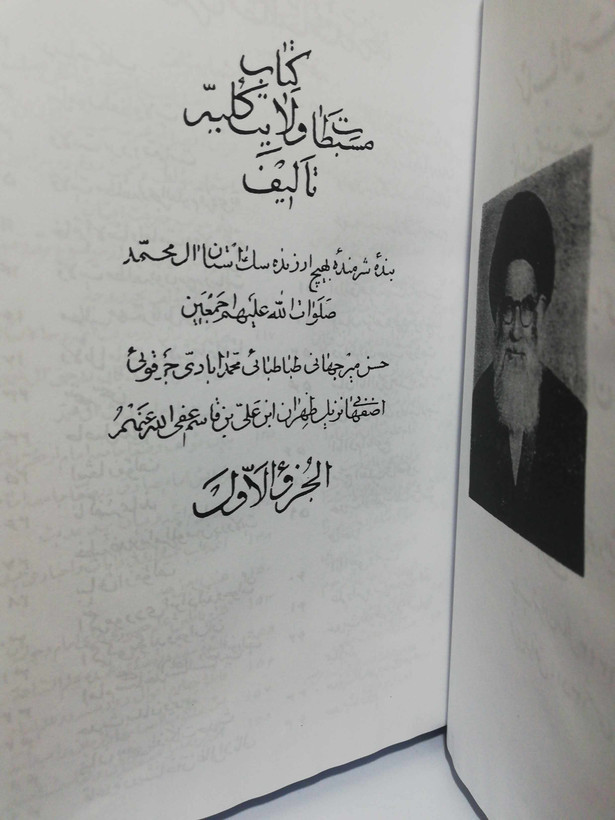 کتاب
ولایت کلیه
تألیف
بندهٔ شرمندهٔ بهیچ ارزنده سگ آستان آل محمّد
صلوات الله علیهم اجمعین
حسن میرجهانی طباطبائی محمدابادی جرقوئی
اصفهانی نزیل طهران ابن علی بن قاسم عفی الله عنهم
الجزؤ الاوّل